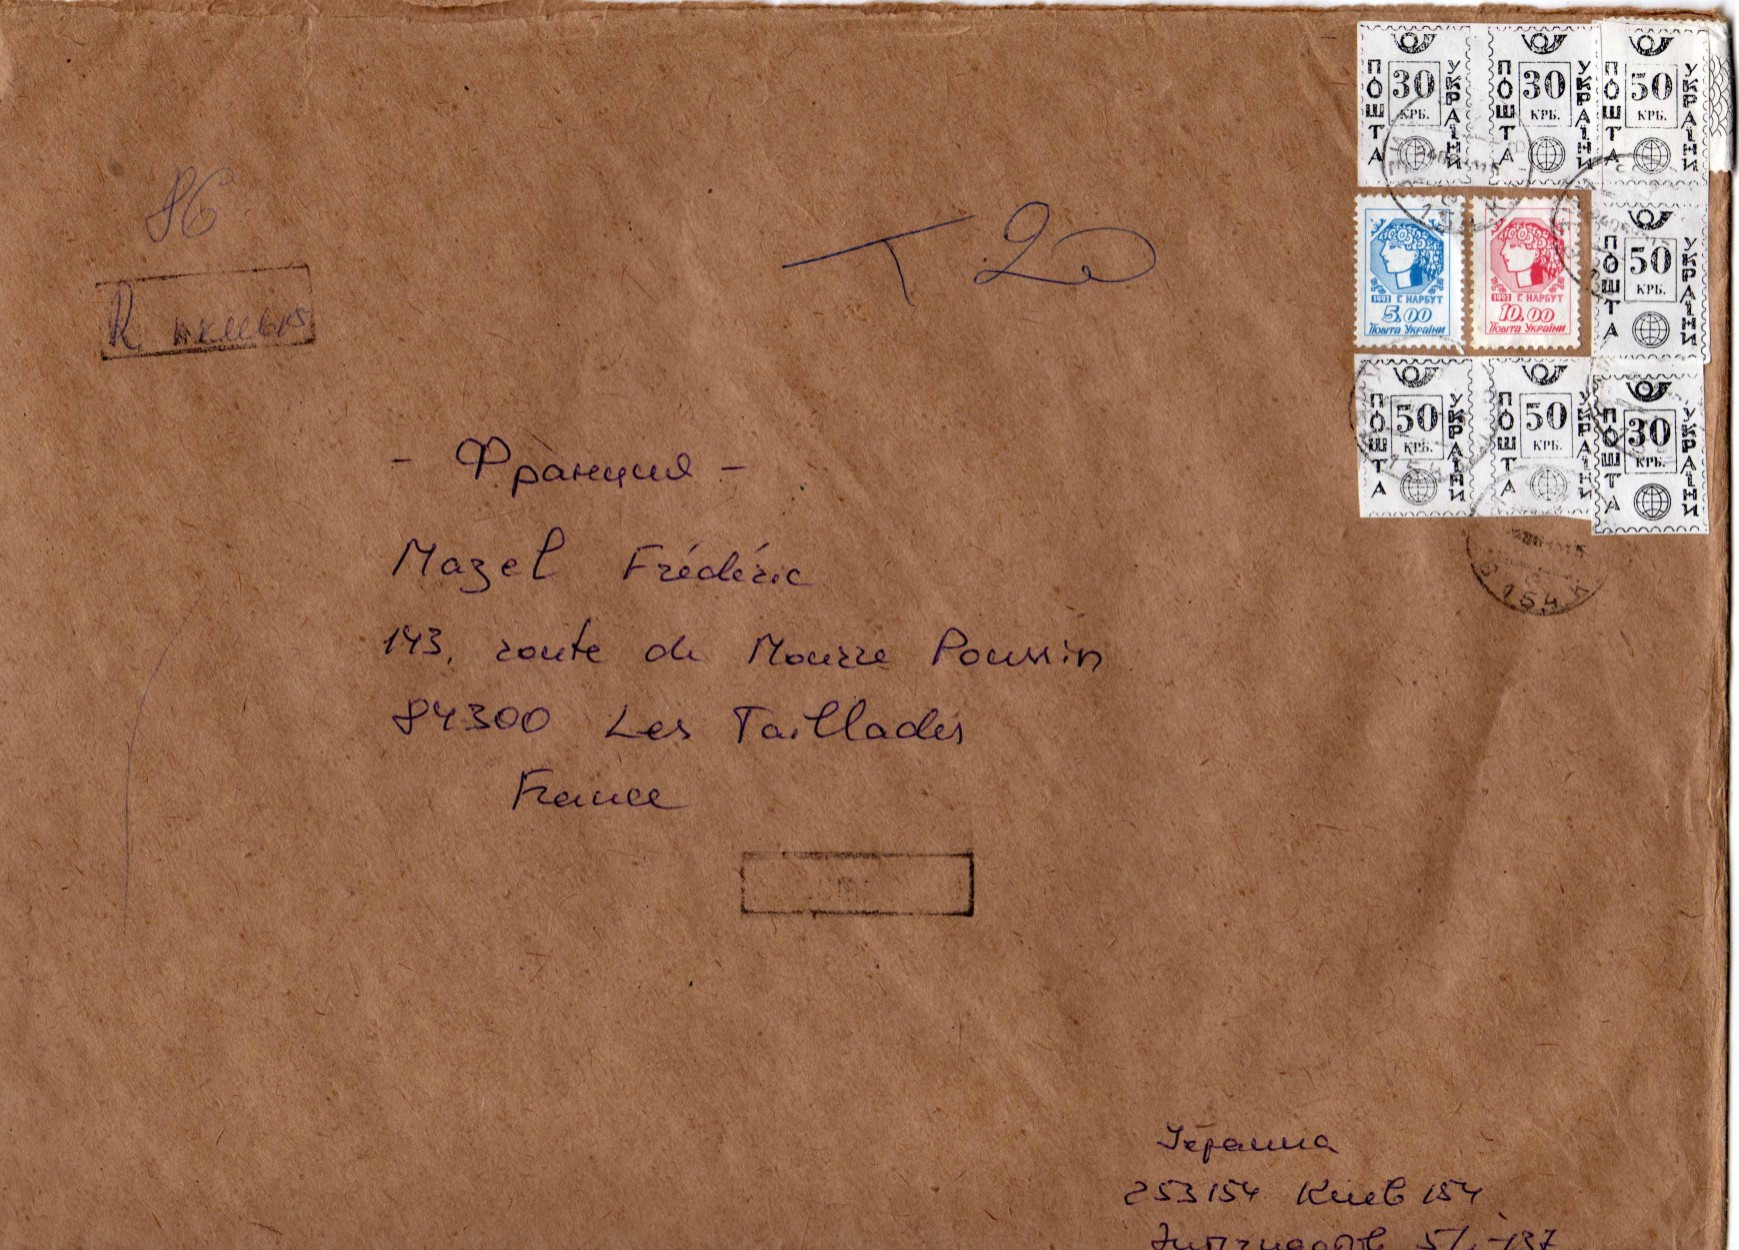 ПОШТА 30 КРБ. УКРАЇНИ
ПОШТА 30 КРБ. УКРАЇНИ
ПОШТА 50 КРБ. УКРАЇНИ
86
T 20
R
1992 Г. НАРБУТ
5.00
Пошта України
1992 Г. НАРБУТ
10.00
Пошта України
ПОШТА 50 КРБ. УКРАЇНИ
ПОШТА 50 КРБ. УКРАЇНИ
ПОШТА 50 КРБ. УКРАЇНИ
ПОШТА 30 КРБ. УКРАЇНИ
- Франция -
Mazel Frédéric
143, route de Mourre Poussin
84300 Les Taillades
France
154 К
Украина
253154 Киев 154